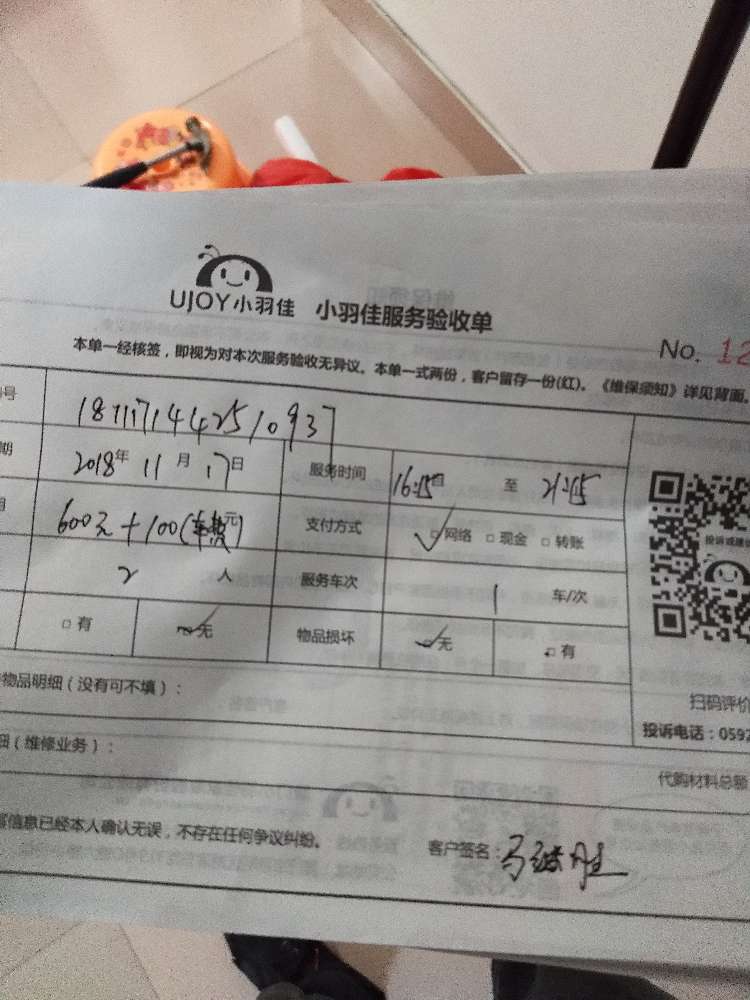 UJOY小羽佳 小羽佳服务验收单
No. 12
本单一经核签，即视为对本次服务验收无异议。本单一式两份，客户留存一份(红)。《维保须知》详见背面。
号 1811171442510937
期 2018年 11月 17日 服务时间 16:15 至 21:15
600元+100(车费元) 支付方式 ✓□网络 □现金 □转账
投诉或建议
2 人 服务车次 1 车/次
□有 ✓无 物品损坏 ✓无 □有
物品明细（没有可不填）：
扫码评价
投诉电话：0592
细（维修业务）：
代购材料总额
信息已经本人确认无误，不存在任何争议纠纷。 客户签名：马继胜